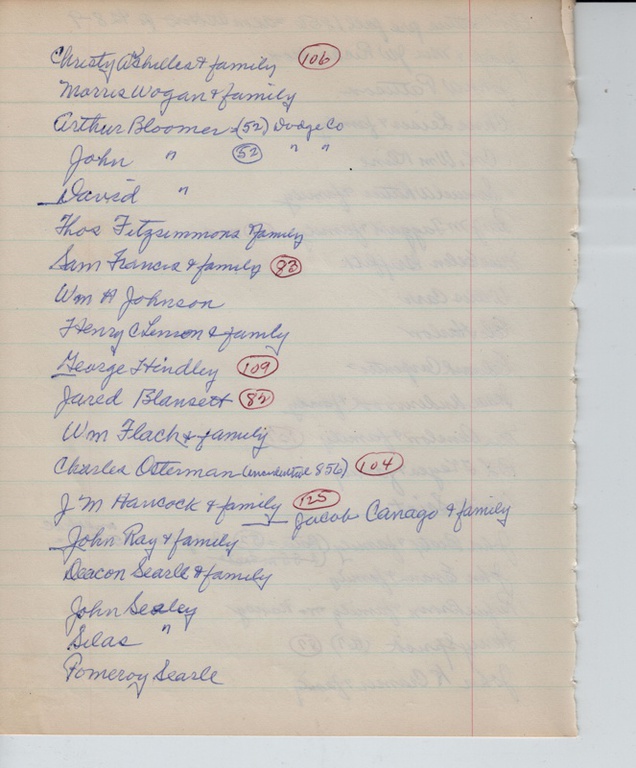 Christy Ackilles & family (106)
Morris Wogan & family
Arthur Bloomer (52) Dodge Co
John " (52) " "
David "
Thos Fitzsimmons & family
Sam Francis & family (83)
Wm H Johnson
Henry C Lemon & family
George Hindley (109)
Jared Blansett (82)
Wm Flack & family
Charles Osterman 856) (104)
J M Hancock & family (125)
Jacob Canago & family
John Ray & family
Deacon Searle & family
John Sealey
Silas "
Pomeroy Searle